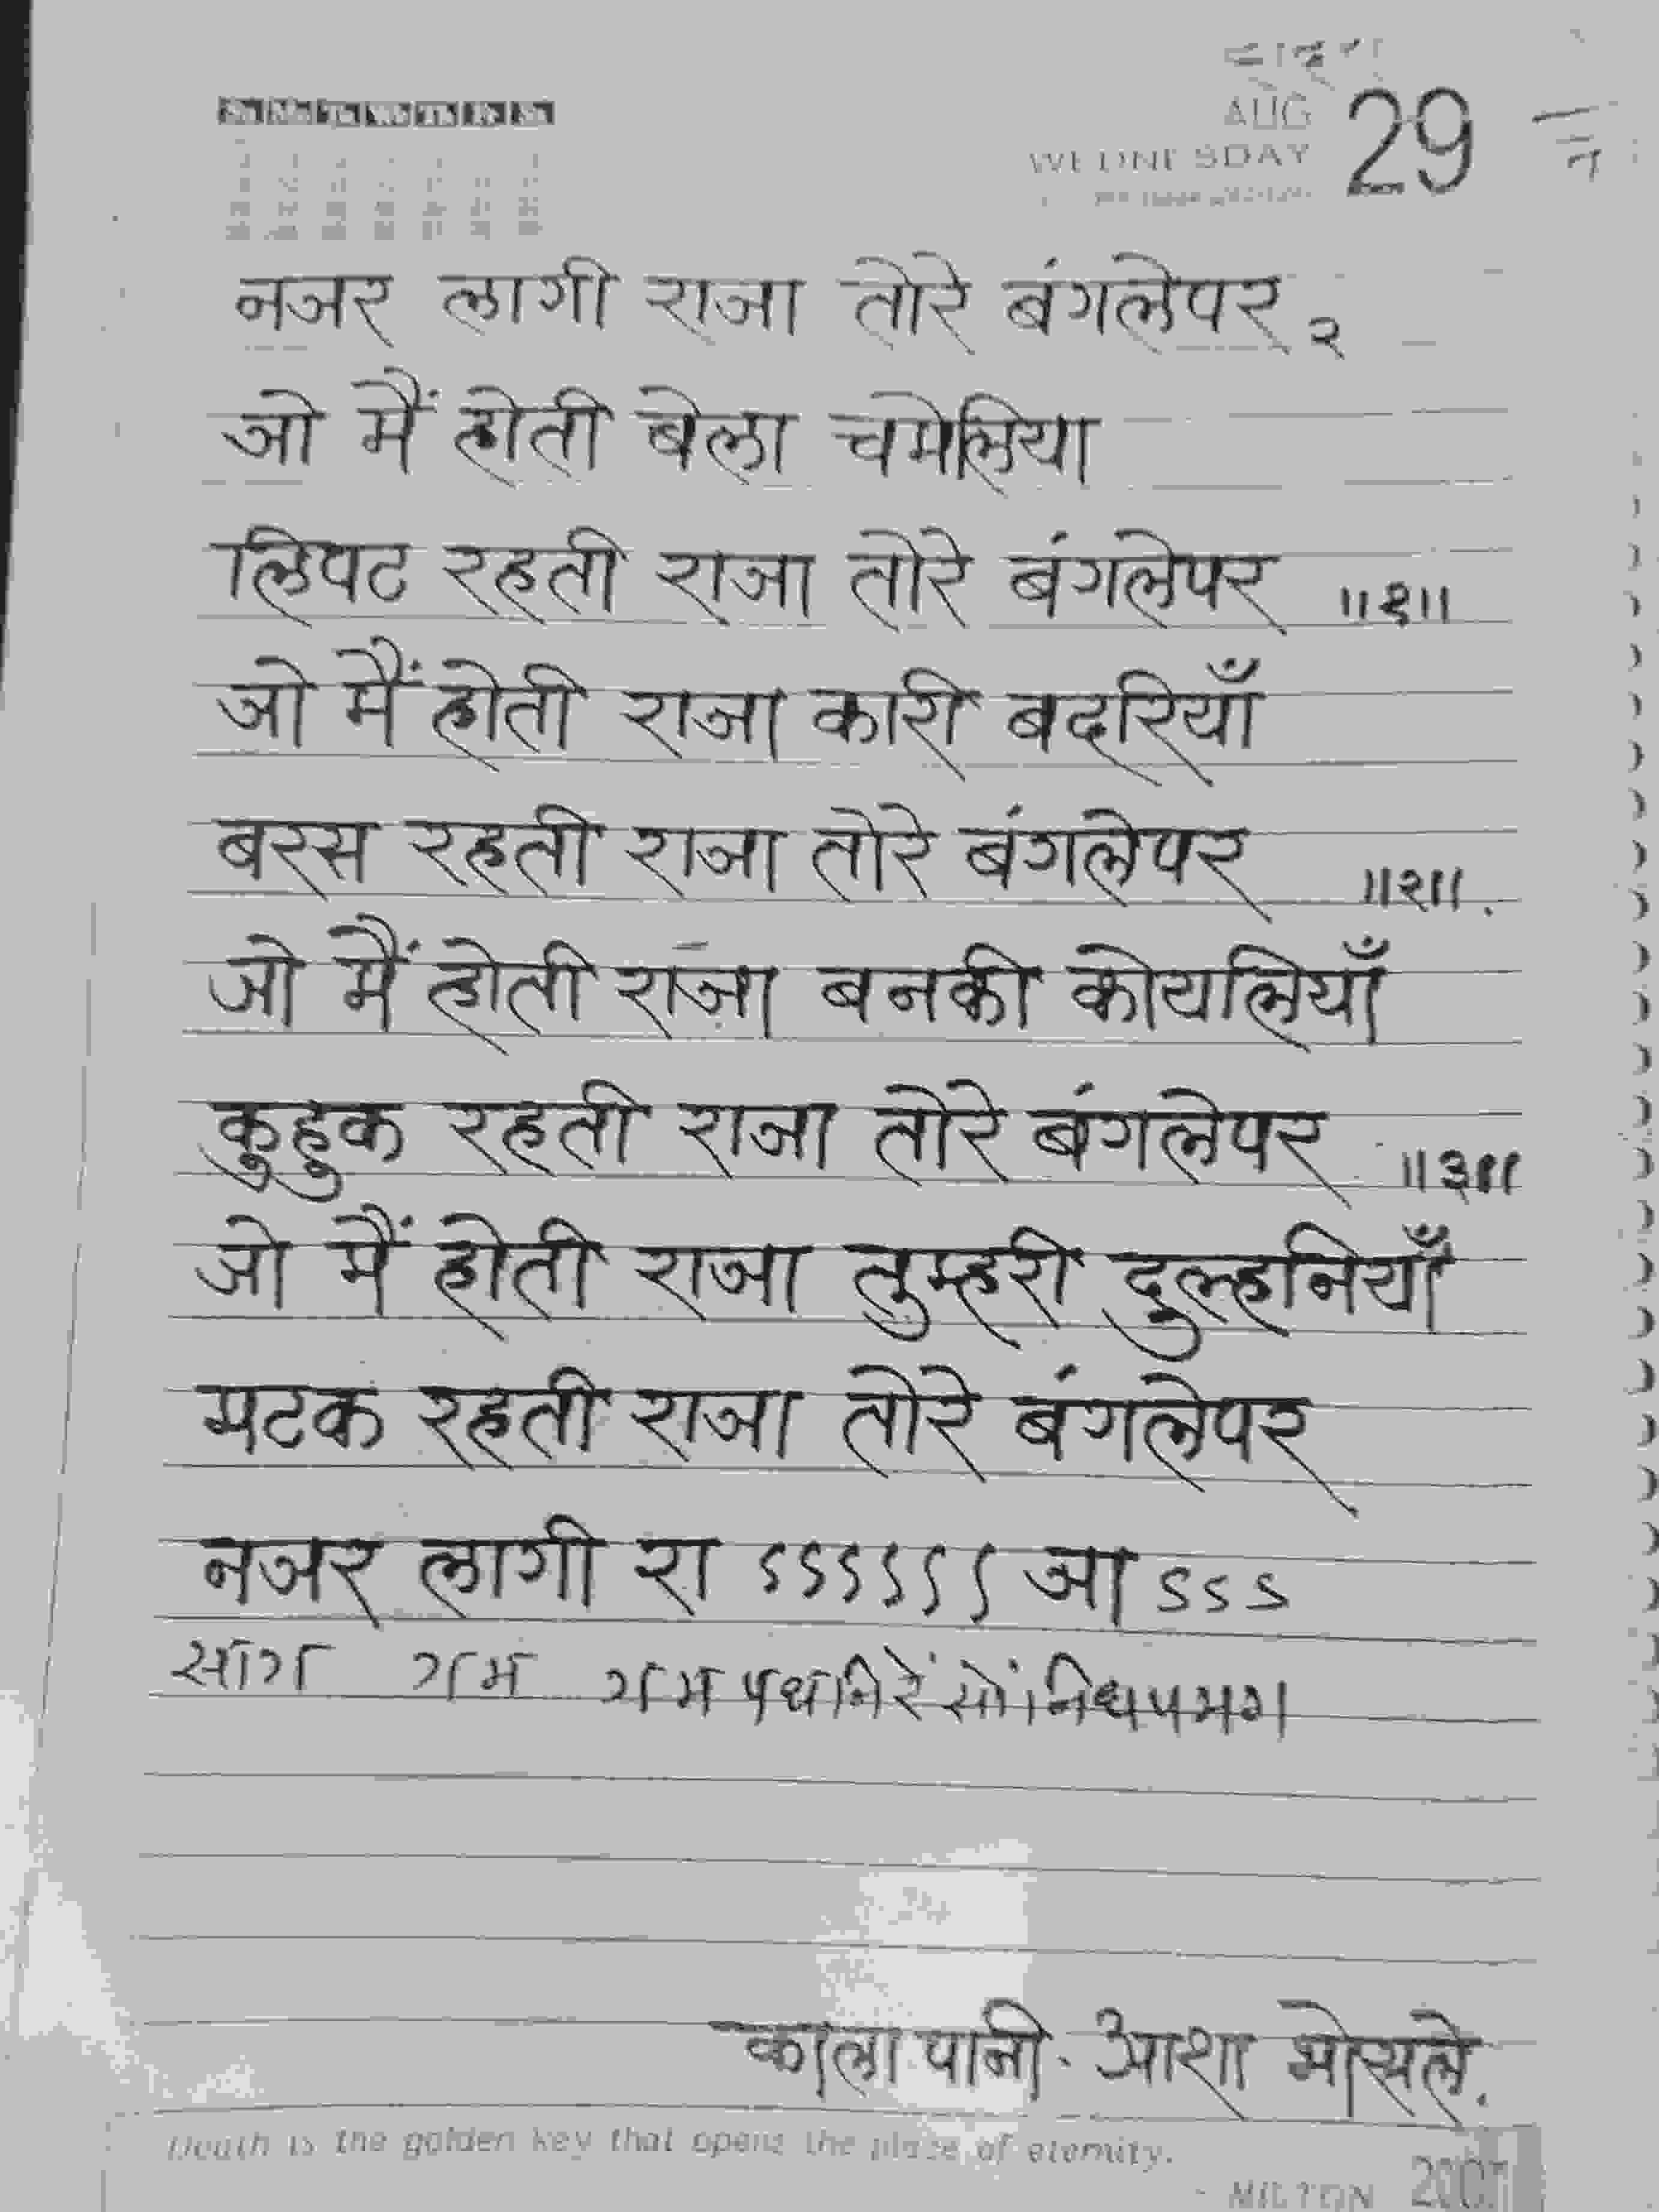 AUG 29
WEDNESDAY
नजर लागी राजा तोरे बंगलेपर २
जो मैं होती बेला चमेलिया
लिपट रहती राजा तोरे बंगलेपर ॥१॥
जो मैं होती राजा कारी बदरियाँ
बरस रहती राजा तोरे बंगलेपर ॥२॥.
जो मैं होती राजा बनकी कोयलियाँ
कुहुक रहती राजा तोरे बंगलेपर ॥३॥
जो मैं होती राजा तुम्हरी दुल्हनियाँ
मटक रहती राजा तोरे बंगलेपर
नजर लागी रा ऽऽऽऽऽऽ जा ऽऽऽ
गम गम पधनिरेंसां।निधपमग।
काला पानी. आशा भोसले.
Death is the golden key that opens the place of eternity.
- MILTON 2007